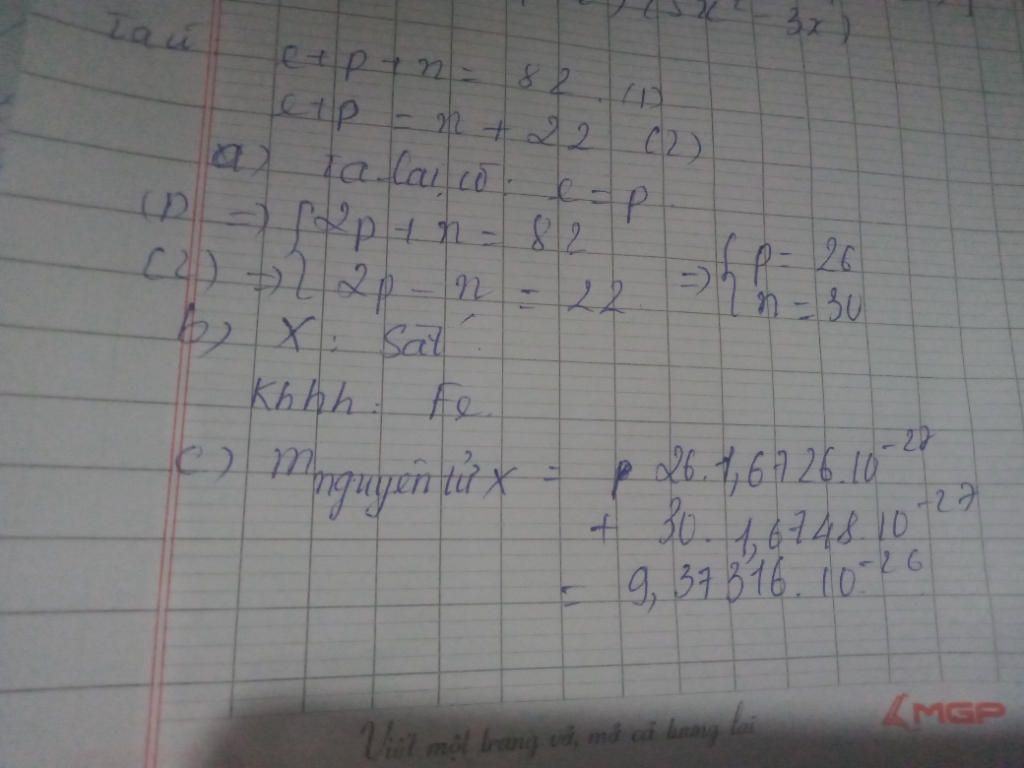 (5x² - 3x)
Ta có
e + p + n = 82 (1)
e + p = n + 22 (2)
a) Ta lại có: e = p
(1) => { 2p + n = 82
(2) => { 2p - n = 22 => { p = 26 n = 30
b) X: Sắt
Khhh: Fe.
c) m nguyên tử X = 26.1,6726.10⁻²⁷
+ 30.1,6748.10⁻²⁷
= 9,37316.10⁻²⁶
Viết một trang vở, mở cả tương lai
MGP